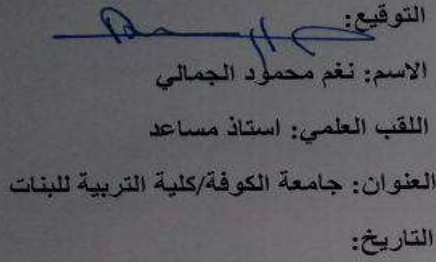 التوقيع:
الاسم: نغم محمود الجمالي
اللقب العلمي: استاذ مساعد
العنوان: جامعة الكوفة/كلية التربية للبنات
التاريخ: